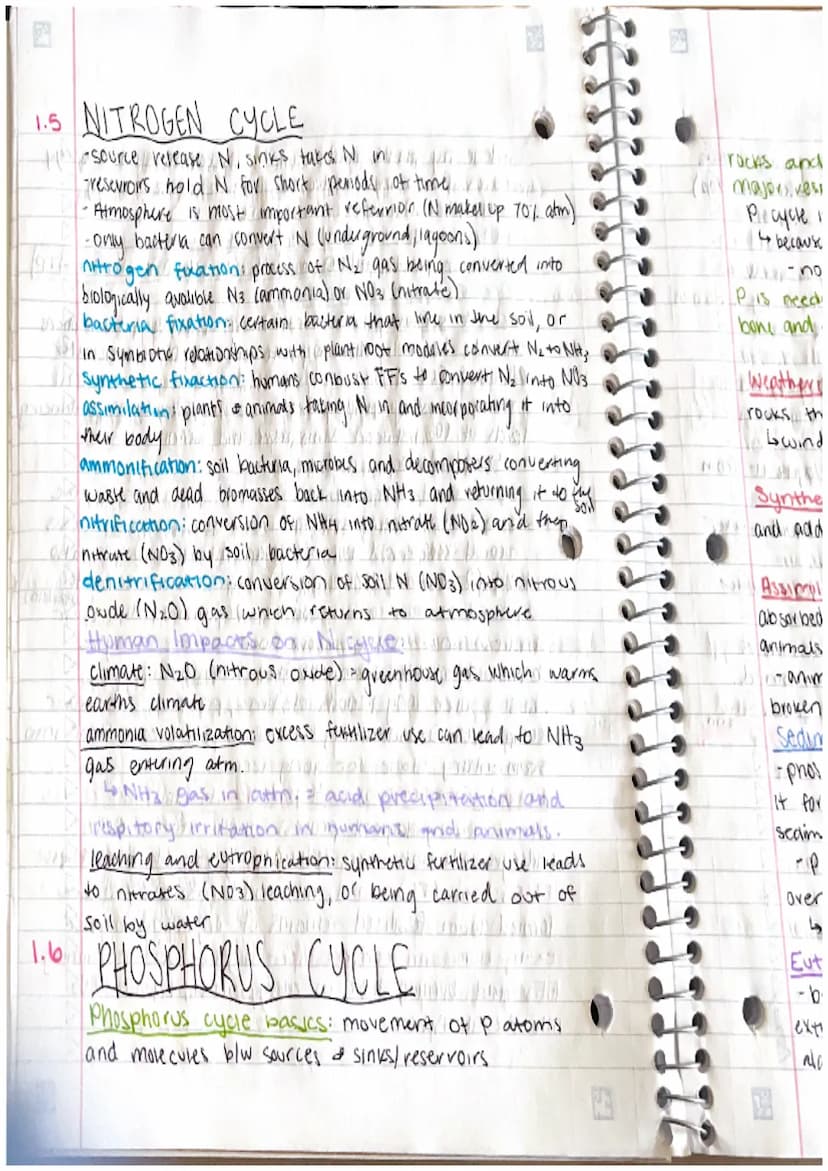 1.5 NITROGEN CYCLE
-source release N, sinks takes N in
-reservoirs hold N for short periods of time
- Atmosphere is most important (N makes up 70% atm)
-only bacteria can convert N (underground, lagoons)
nitrogen fixation: process of N2 gas being converted into
biologically avalible N3 (ammonia) or NO3 (nitrate)
bacteria fixation: certain bacteria that live in the soil, or
in symbiotic relationships with plant root modules convert N2 to NH3
synthetic fixaction: humans conbust FF's to convert N2 into NO3
assimilation: plants & animals taking N in and incorporating it into
their body
ammonification: soil bacteria, microbes and decomposers converting
waste and dead biomasses back into NH3 and returning it to the
soil
nitrification: conversion of NH4 into nitrate (NO2) and then
nitrate (NO3) by soil bacteria
denitrification: conversion of soil N (NO3) into nitrous
oxide (N2O) gas which returns to atmosphere
Human Impacts on N cycle:
climate: N2O (nitrous oxide) = greenhouse gas which warms
earths climate
ammonia volatilization: excess fertilizer use can lead to NH3
gas entering atm.
↳ NH3 gas in atm. = acid precipitation and
respitory irritation in humans and animals.
leaching and eutrophication: synthetic fertilizer use leads
to nitrates (NO3) leaching, or being carried out of
soil by water
1.6 PHOSPHORUS CYCLE
Phosphorus cycle basics: movement of P atoms
and molecules b/w sources & sinks/reservoirs
rocks and
major
P cycle
↳ because
- no
P is need
bone and
rocks th
↳ wind
Synthe
and add
Assimil
absorbed
animals
- anim
broken
Sedim
- phos
it for
- P
over
↳
Eut
- b
ext